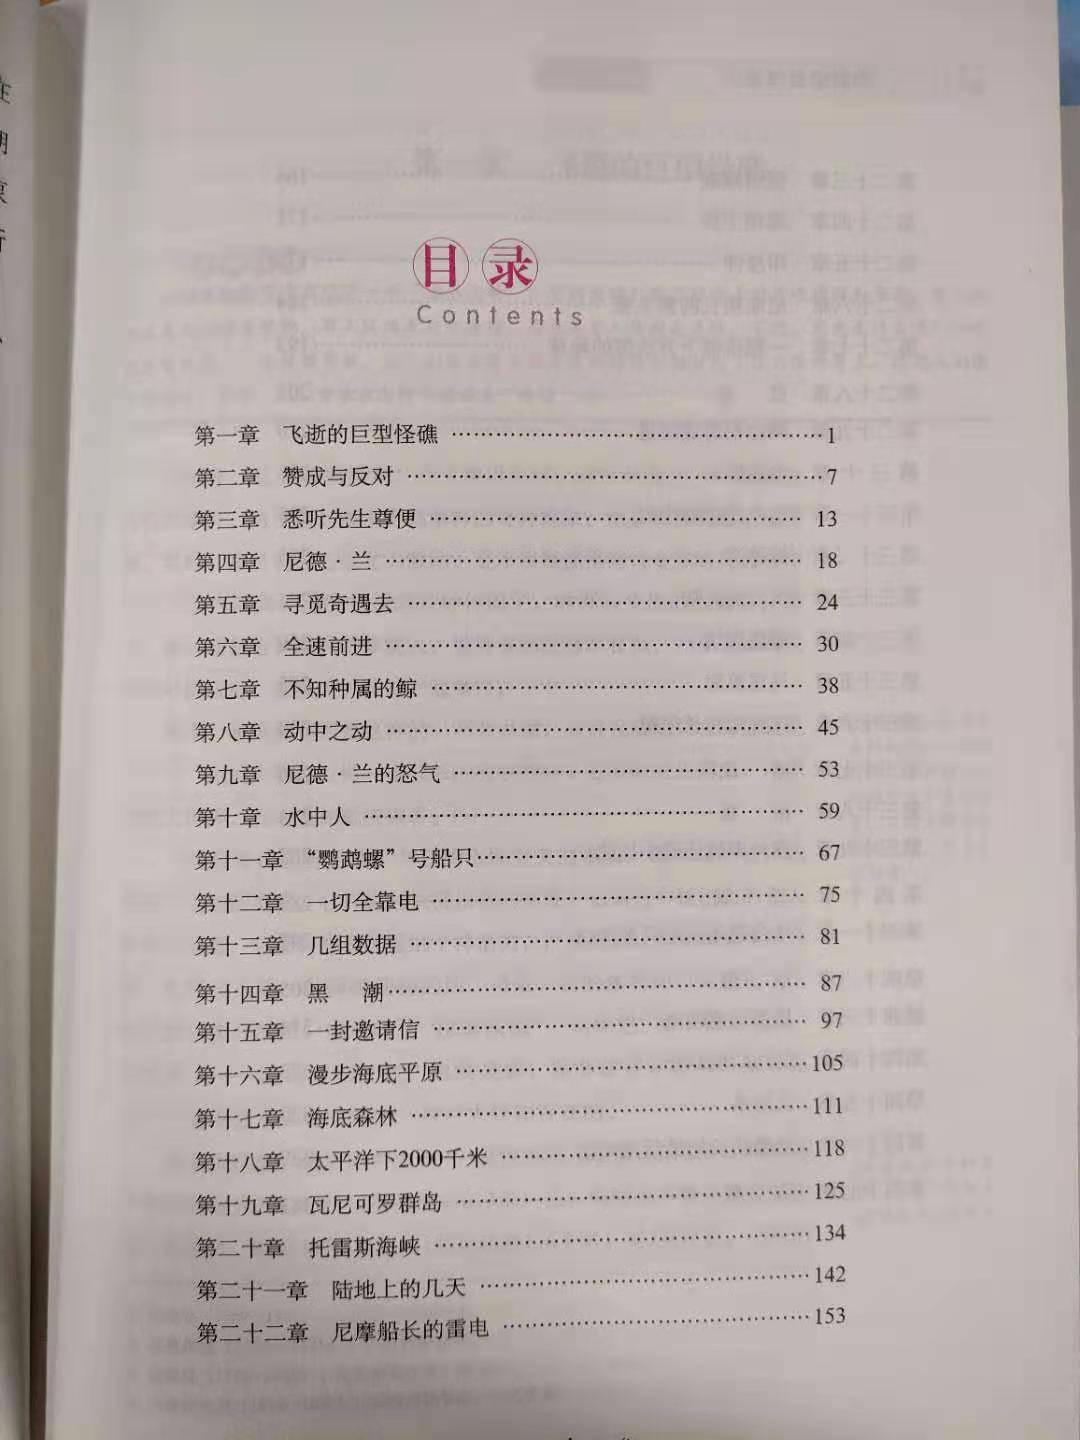 目录
Contents
第一章 飞逝的巨型怪礁 ………………………………………… 1
第二章 赞成与反对 ………………………………………… 7
第三章 悉听先生尊便 ………………………………………… 13
第四章 尼德·兰 ………………………………………… 18
第五章 寻觅奇遇去 ………………………………………… 24
第六章 全速前进 ………………………………………… 30
第七章 不知种属的鲸 ………………………………………… 38
第八章 动中之动 ………………………………………… 45
第九章 尼德·兰的怒气 ………………………………………… 53
第十章 水中人 ………………………………………… 59
第十一章 “鹦鹉螺”号船只 ………………………………………… 67
第十二章 一切全靠电 ………………………………………… 75
第十三章 几组数据 ………………………………………… 81
第十四章 黑 潮 ………………………………………… 87
第十五章 一封邀请信 ………………………………………… 97
第十六章 漫步海底平原 ………………………………………… 105
第十七章 海底森林 ………………………………………… 111
第十八章 太平洋下2000千米 ………………………………………… 118
第十九章 瓦尼可罗群岛 ………………………………………… 125
第二十章 托雷斯海峡 ………………………………………… 134
第二十一章 陆地上的几天 ………………………………………… 142
第二十二章 尼摩船长的雷电 ………………………………………… 153